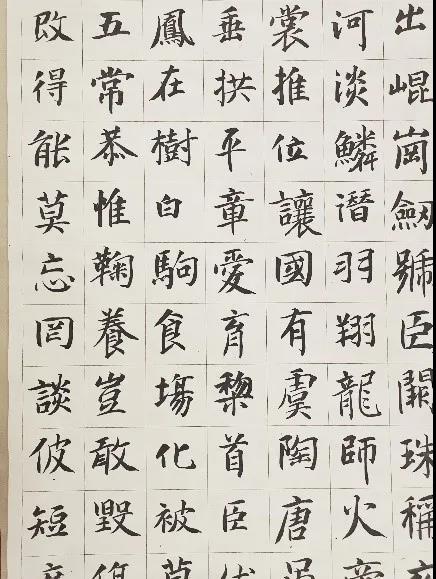 出崐崗劒號巨闕珠稱
河淡鱗潛羽翔龍師火帝
裳推位讓國有虞陶唐吊
垂拱平章愛育黎首臣伏
鳳在樹白駒食場化被草
五常恭惟鞠養豈敢毀傷
改得能莫忘罔談彼短靡